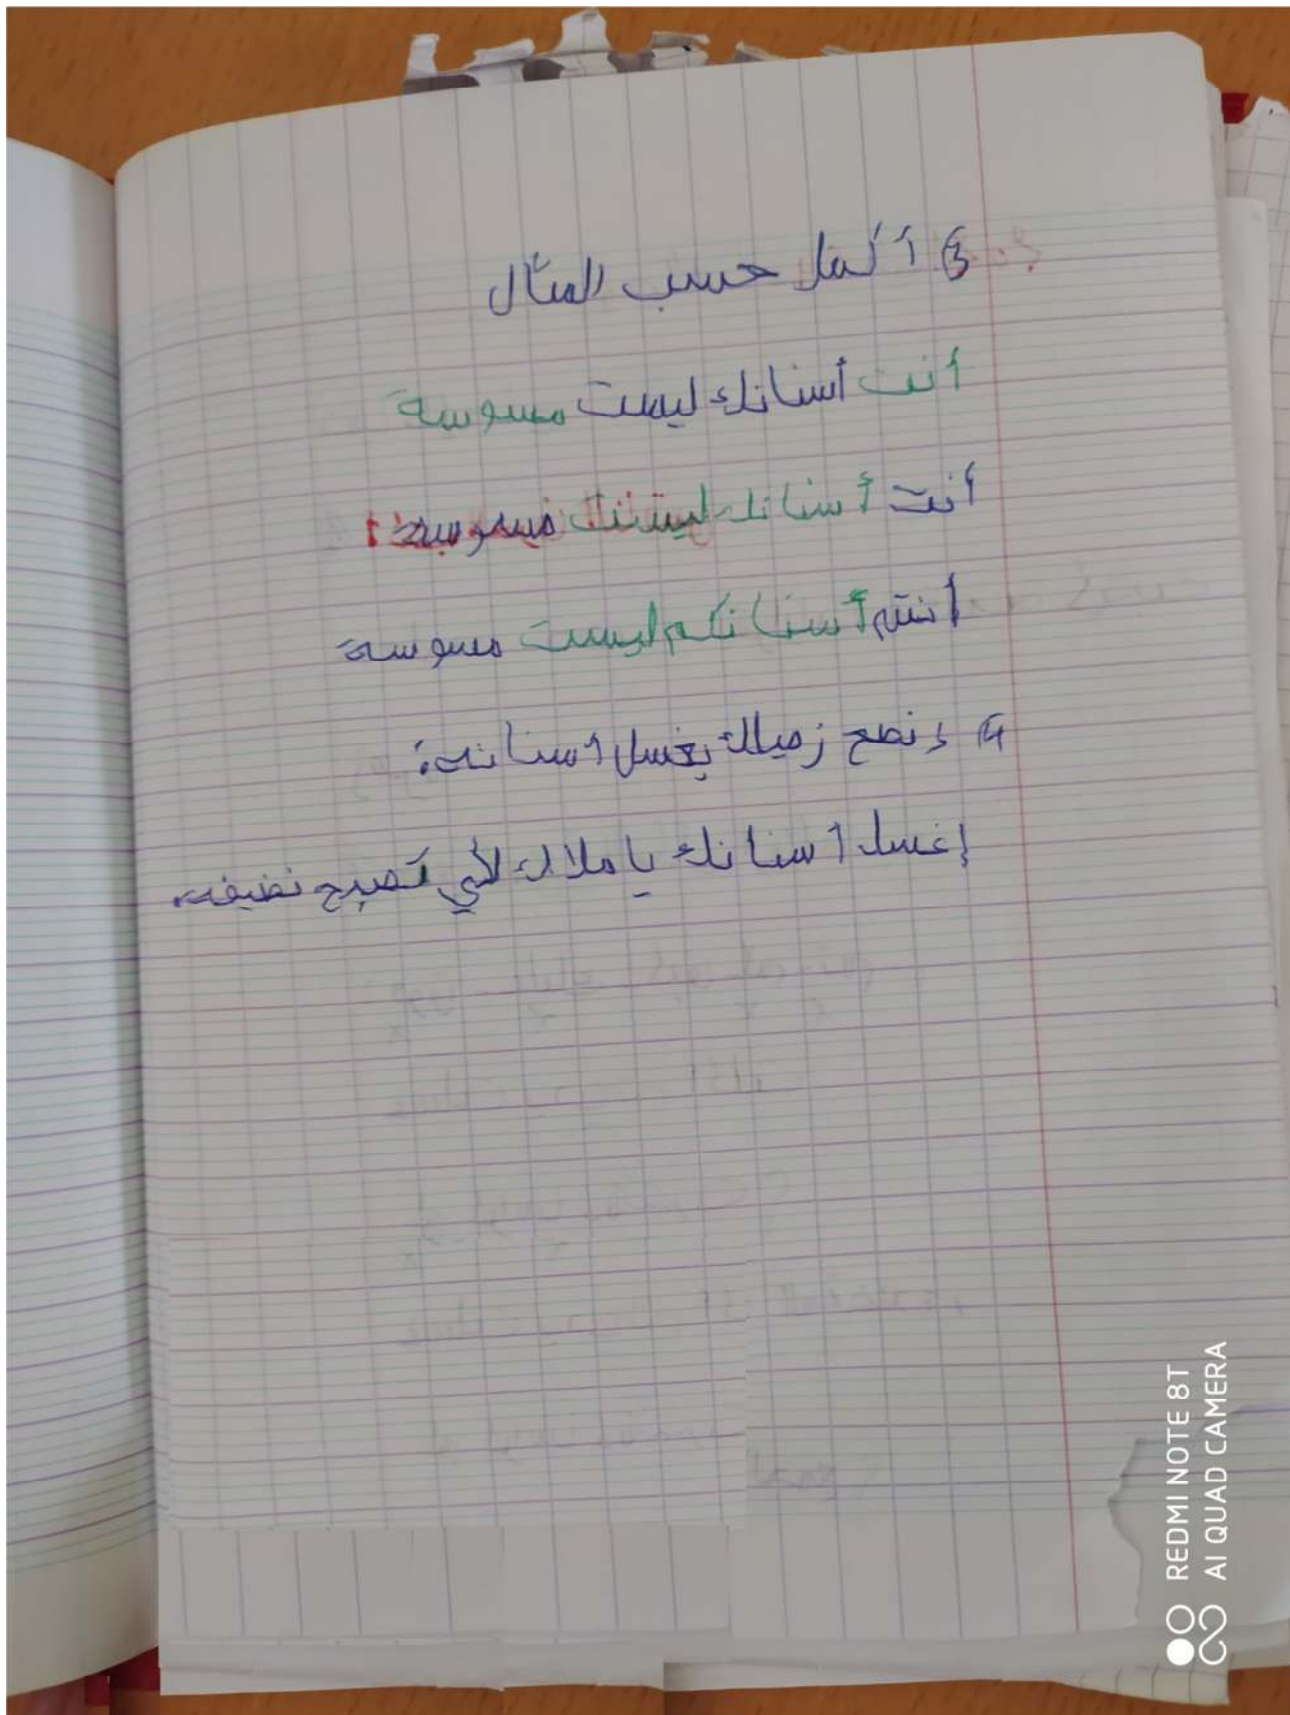 3 أكمل حسب المثال
أنت أسنانك ليست مسوسة
أنت أسنانك ليست مسوسة
أنتم أسنانكم ليست مسوسة
4 إنصح زميلك بغسل أسنانه:
إغسل أسنانك يا ملاك لكي تصبح نضيفة.
REDMI NOTE 8T
AI QUAD CAMERA